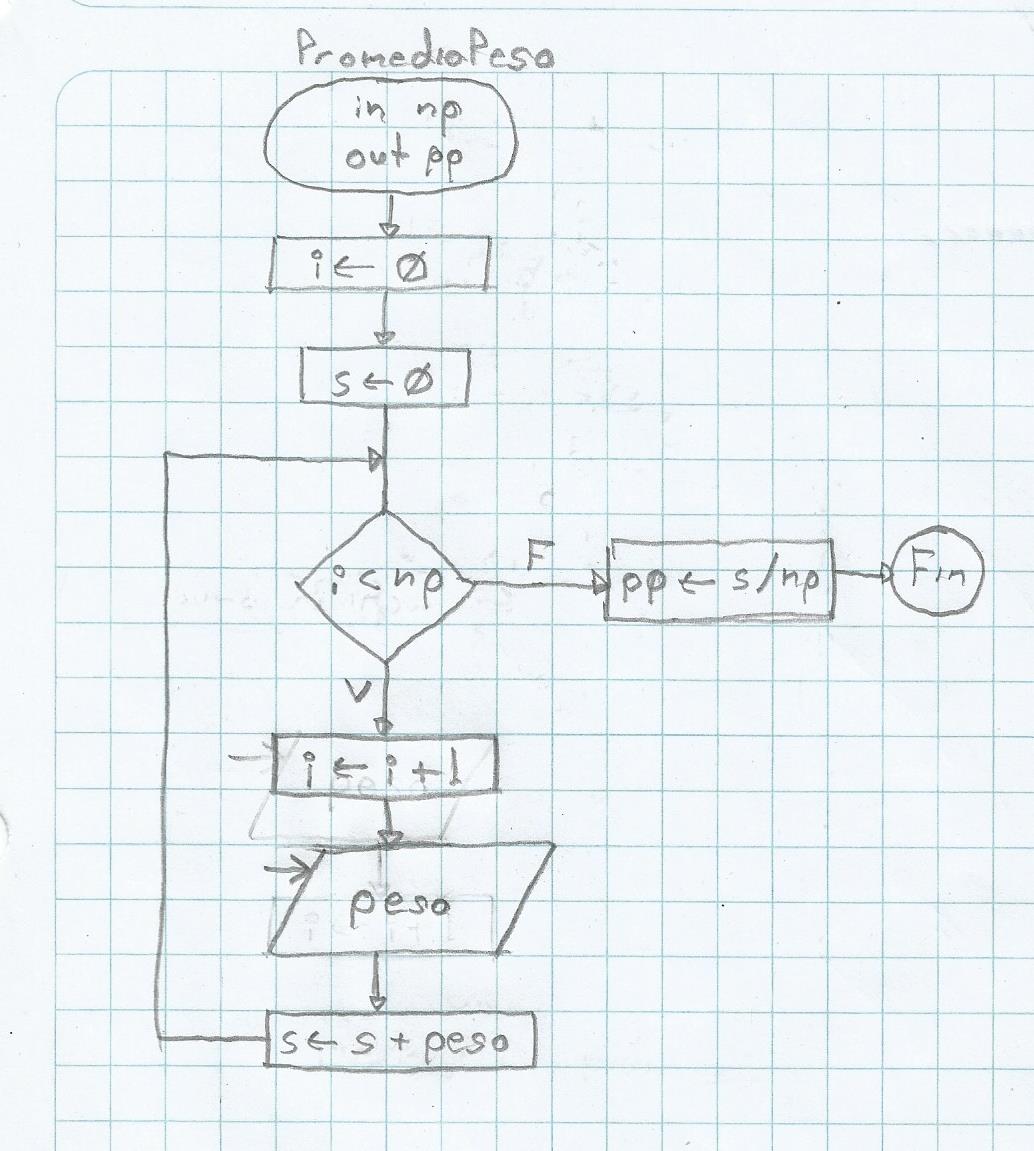 PromedioPeso
in np
out pp
i ← 0
s ← 0
i < np
F
pp ← s/np
Fin
V
i ← i + 1
peso
s ← s + peso